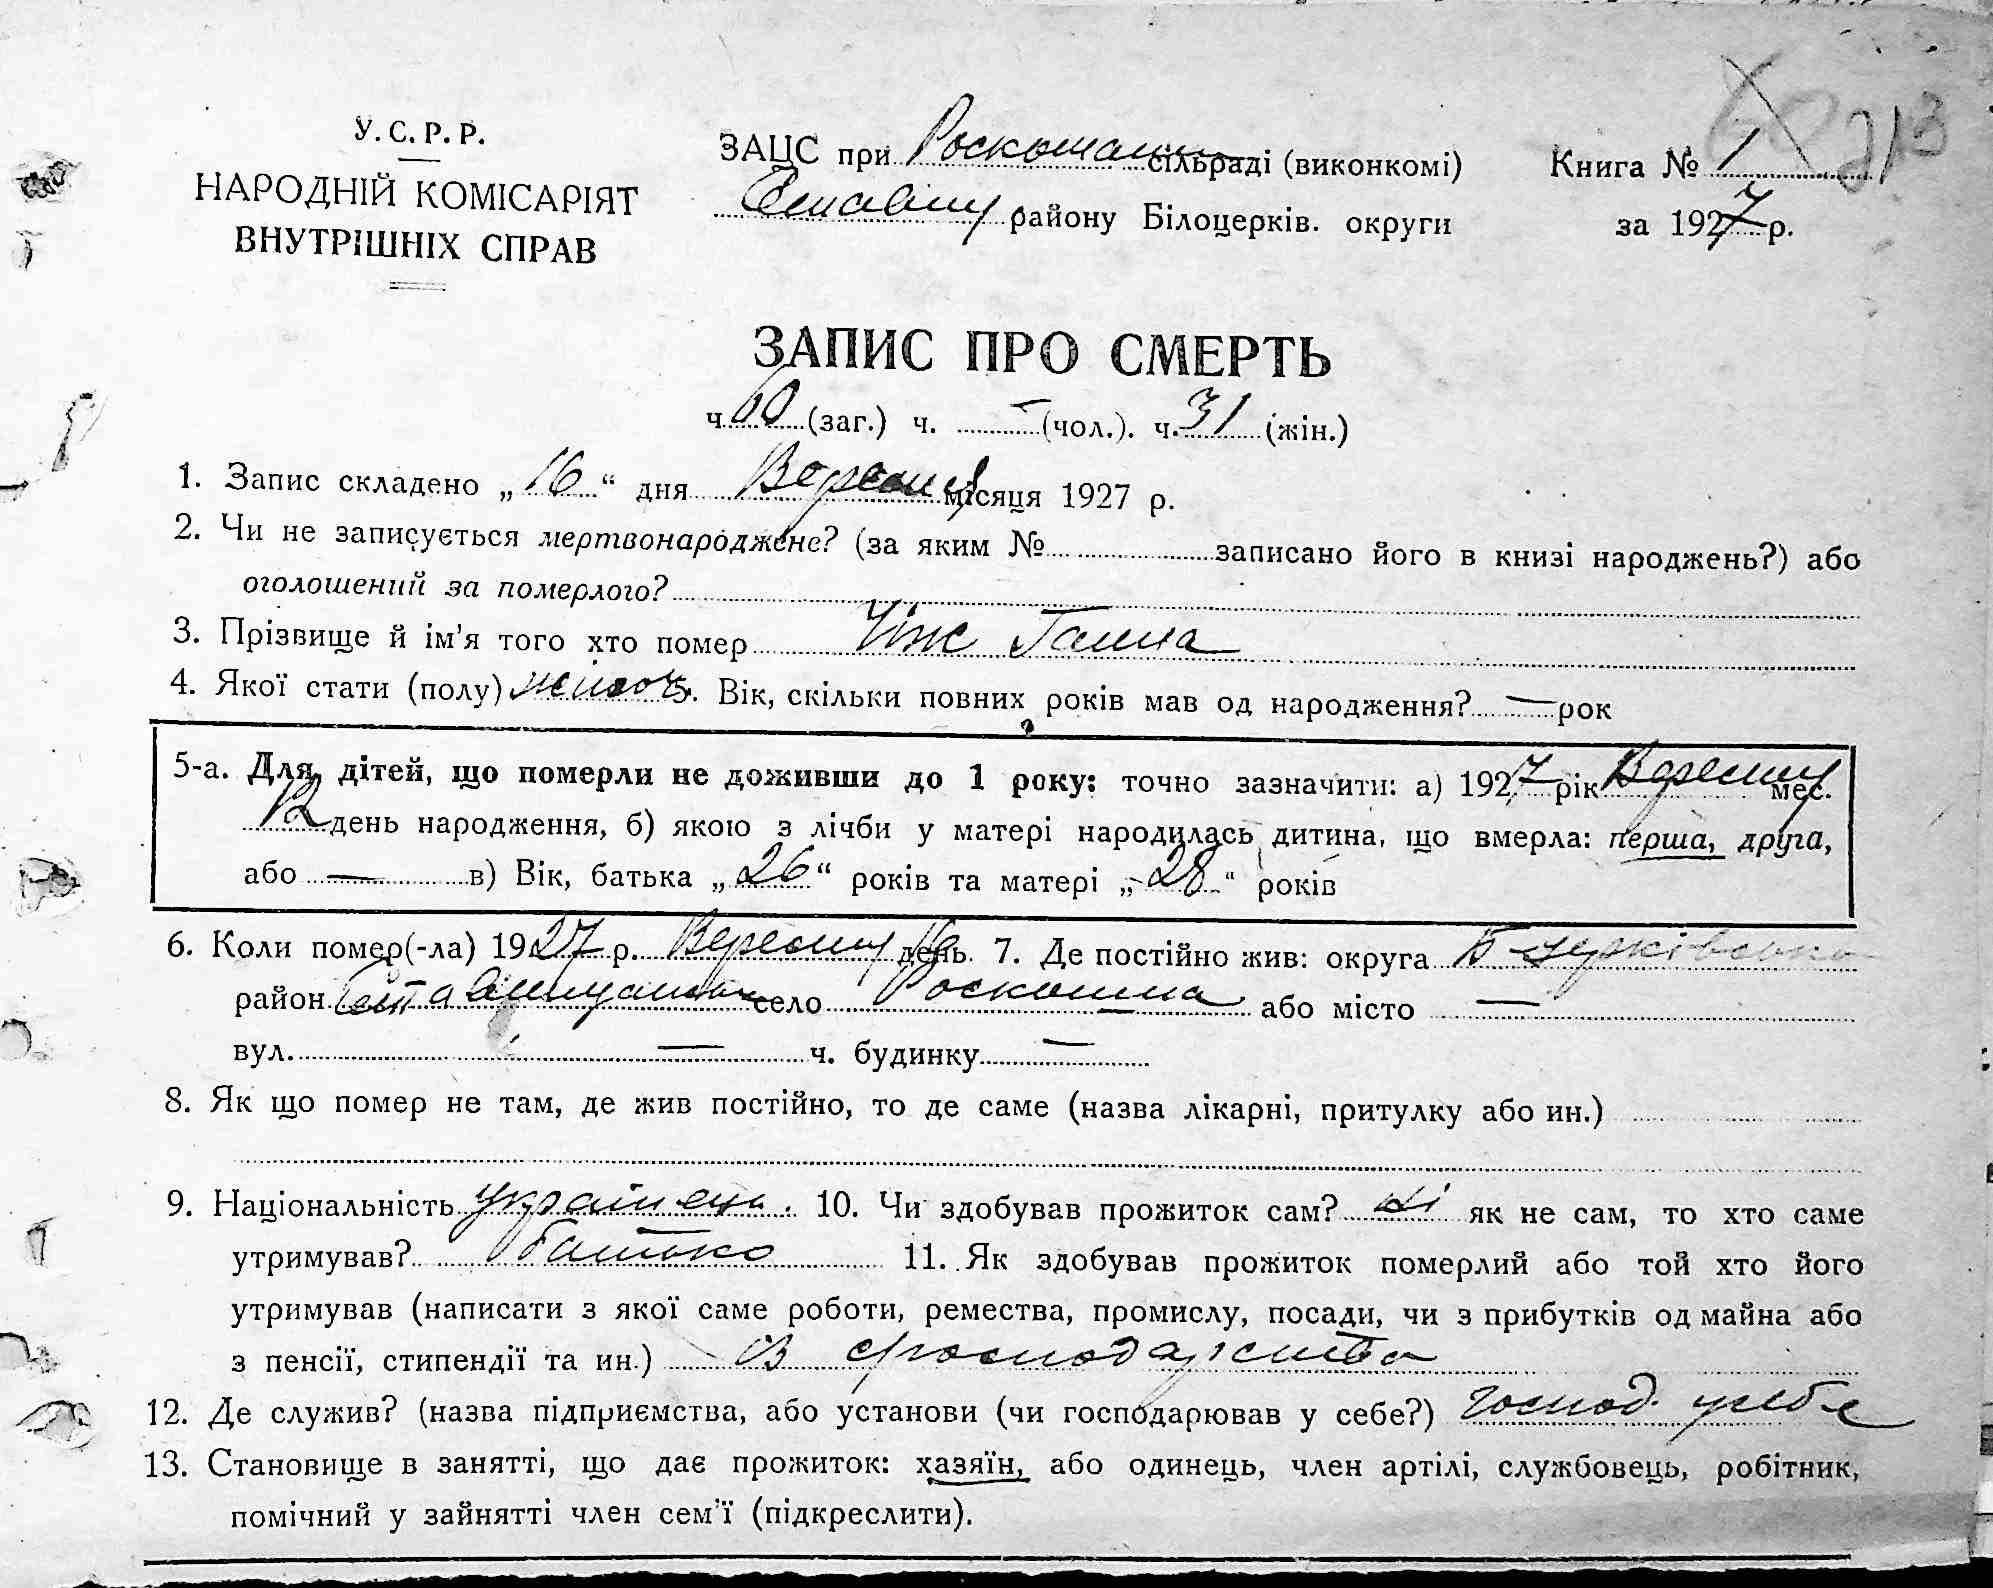 У. С. Р. Р.
НАРОДНІЙ КОМІСАРІЯТ
ВНУТРІШНІХ СПРАВ
213
ЗАЦС при сільраді (виконкомі)
району Білоцерків. округи
Книга № 1
за 1927 р.
ЗАПИС ПРО СМЕРТЬ
ч. 60 (заг.) ч. — (чол.). ч. 31 (жін.)
1. Запис складено „ 16 “ дня Вересня місяця 1927 р.
2. Чи не записується мертвонароджене? (за яким № записано його в книзі народжень?) або
оголошений за померлого?
3. Прізвище й ім’я того хто помер Чіж Ганна
4. Якої стати (полу) жіноч 5. Вік, скільки повних років мав од народження? — рок
5-а. Для дітей, що померли не доживши до 1 року: точно зазначити: а) 1927 рік Вересню мес.
12 день народження, б) якою з лічби у матері народилась дитина, що вмерла: перша, друга,
або — в) Вік, батька „ 26 “ років та матері „ 28 “ років
6. Коли помер(-ла) 1927 р. Вересню 16 день. 7. Де постійно жив: округа Б церківська
район село Роскошна або місто —
вул. — ч. будинку —
8. Як що помер не там, де жив постійно, то де саме (назва лікарні, притулку або ин.)
9. Національність українець. 10. Чи здобував прожиток сам? ні як не сам, то хто саме
утримував? батько 11. Як здобував прожиток померлий або той хто його
утримував (написати з якої саме роботи, ремества, промислу, посади, чи з прибутків од майна або
з пенсії, стипендії та ин.) із господарства
12. Де служив? (назва підприємства, або установи (чи господарював у себе?) господ. у себе
13. Становище в занятті, що дає прожиток: хазяїн, або одинець, член артілі, службовець, робітник,
помічний у зайнятті член сем’ї (підкреслити).